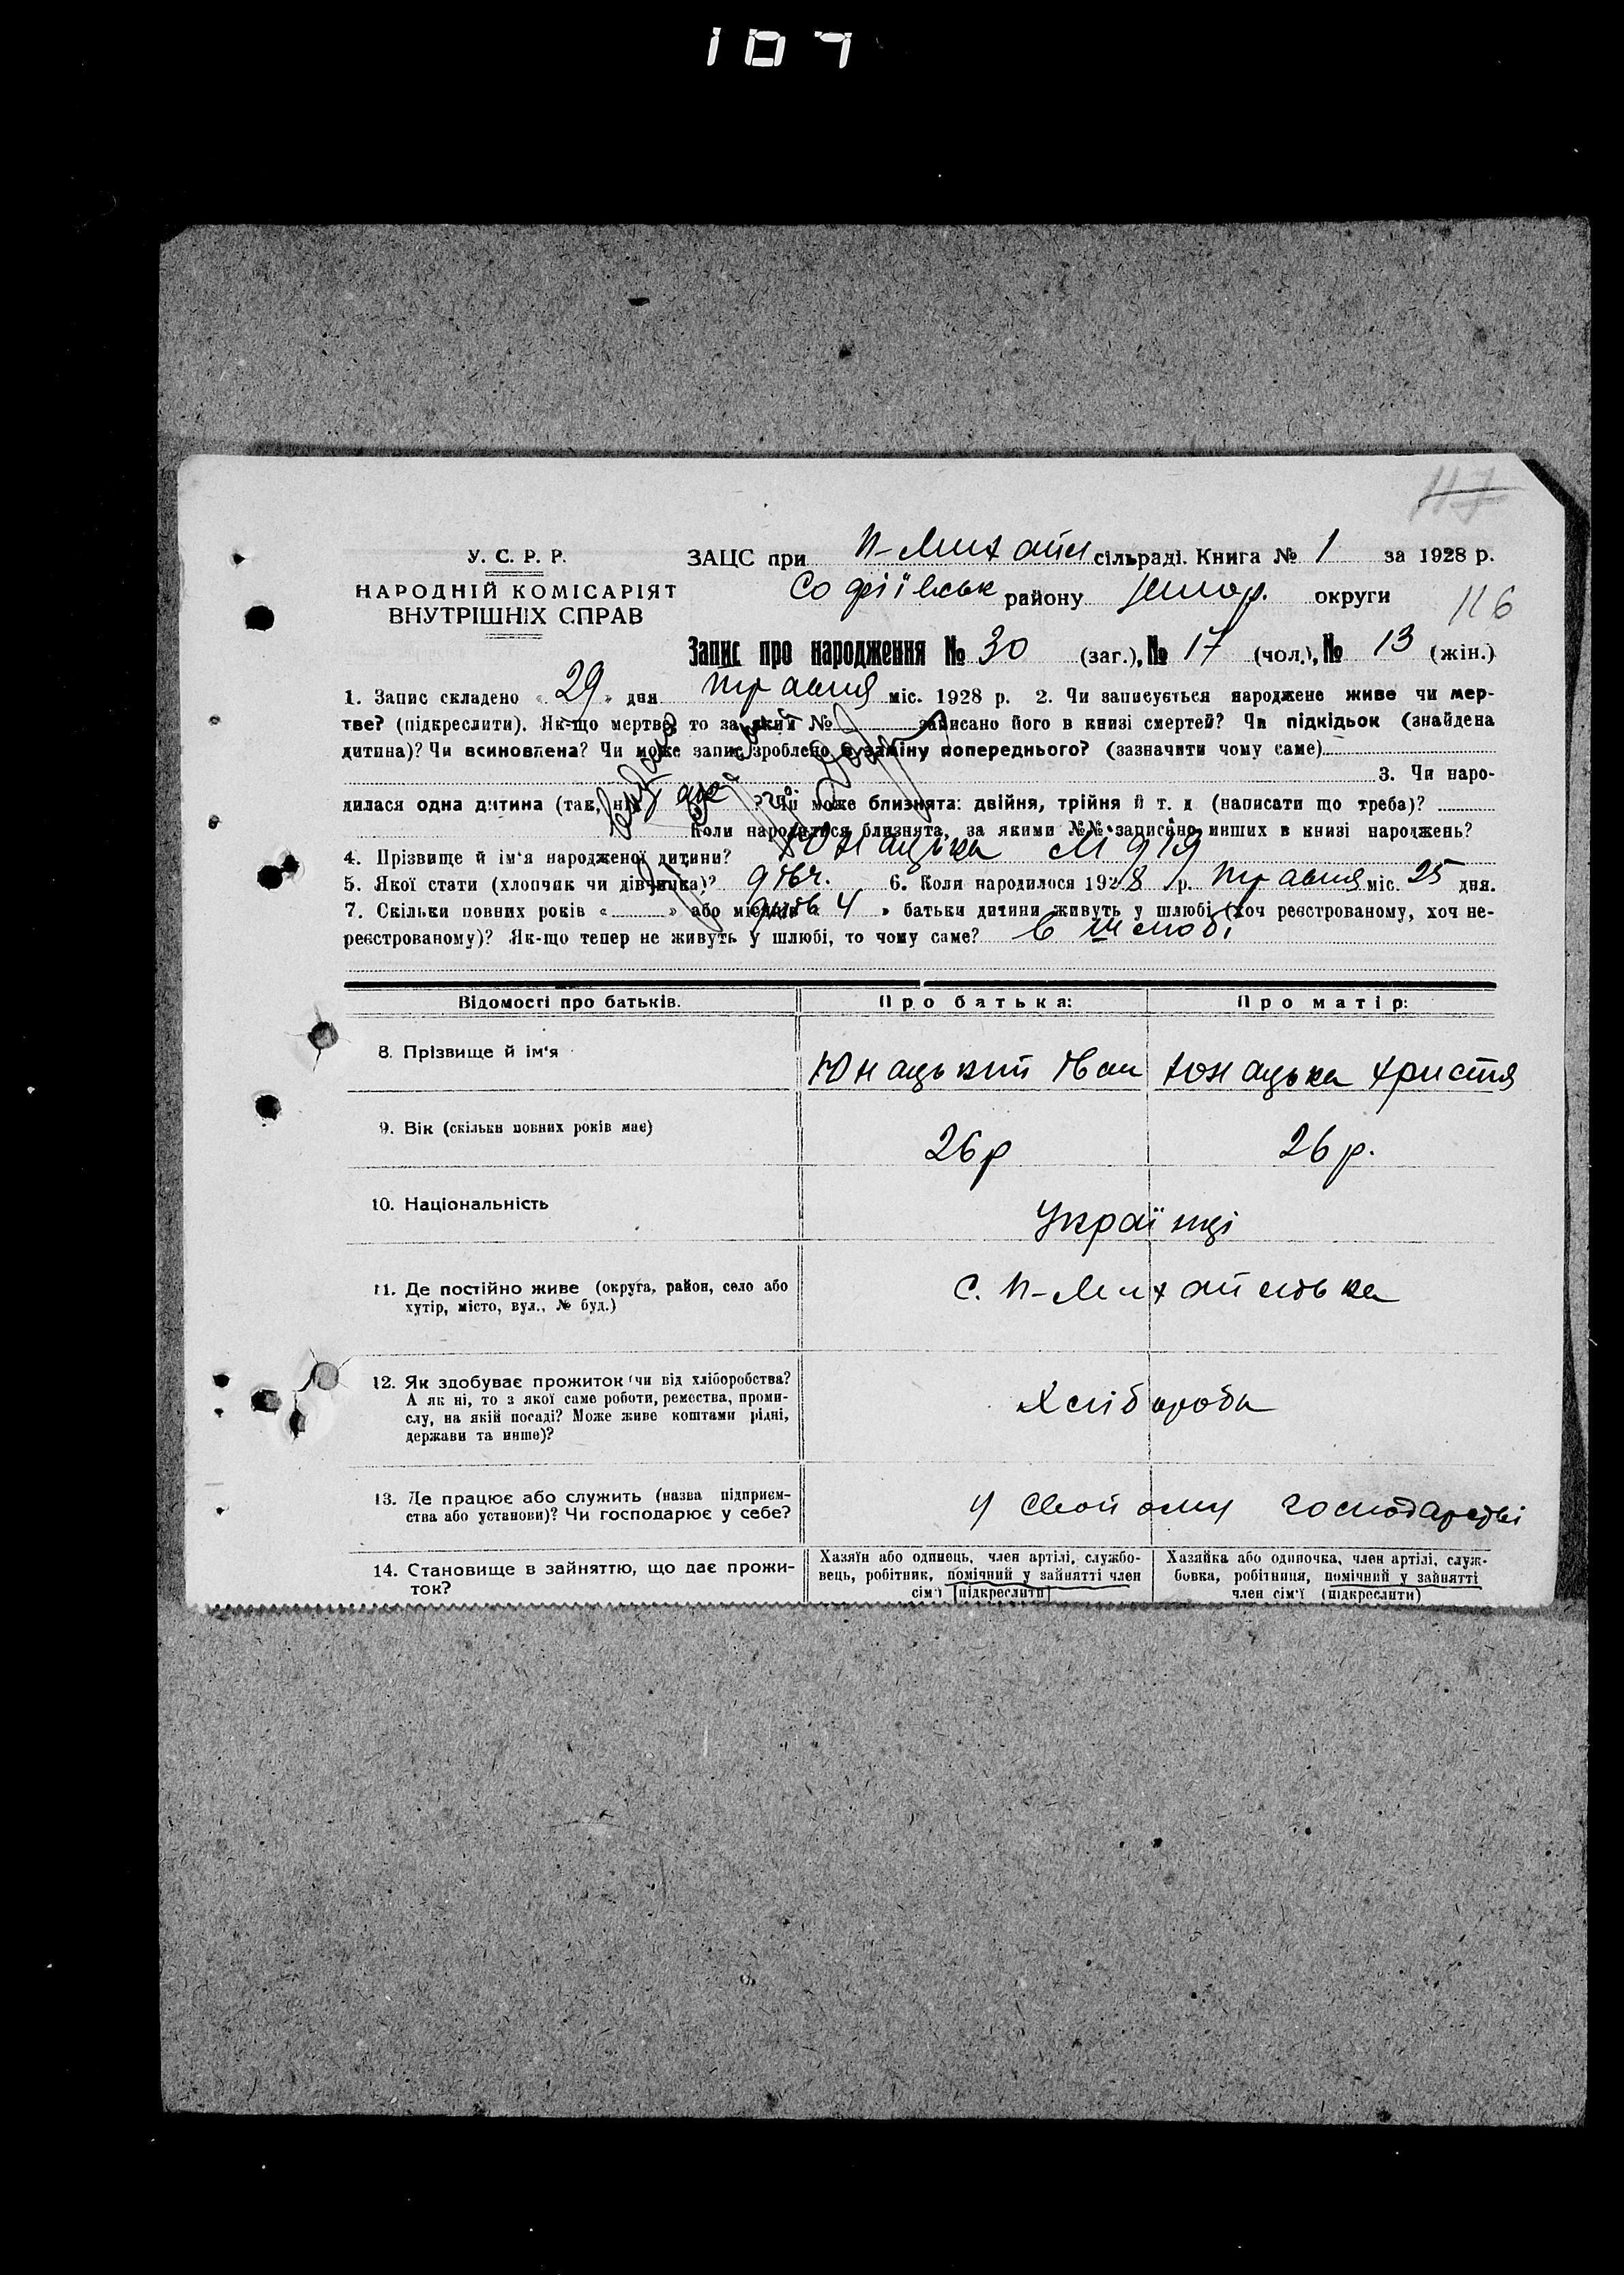 107
117
У. С. Р. Р.
НАРОДНІЙ КОМІСАРІЯТ
ВНУТРІШНІХ СПРАВ
ЗАЦС при П-Михайл сільраді. Книга № 1 за 1928 р.
Софіївськ району округи
116
Запис про народження № 30 (заг.), № 17 (чол.), № 13 (жін.)
1. Запис складено «29» дня травня міс. 1928 р. 2. Чи записується народжене живе чи мер-
тве? (підкреслити). Як-що мертве, то за яким № записано його в книзі смертей? Чи підкідьок (знайдена
дитина)? Чи всиновлена? Чи може запис зроблено в заміну попереднього? (зазначити чому саме)
3. Чи наро-
дилася одна дитина (так, ні)? Чи може близнята: двійня, трійня й т. д (написати що треба)?
Коли народилися близнята, за якими №№ записано инших в книзі народжень?
4. Прізвище й ім‘я народженої дитини? Юнацька
5. Якої стати (хлопчик чи дівчинка)? дівч. 6. Коли народилося 1928 р. травня міс. 25 дня.
7. Скільки повних років « » або місяців « 4 » батьки дитини живуть у шлюбі (хоч реєстрованому, хоч не-
реєстрованому)? Як-що тепер не живуть у шлюбі, то чому саме? в шлюбі
Відомості про батьків. Про батька: Про матір:
8. Прізвище й ім‘я Юнацький Іван Юнацька Христя
9. Вік (скільки повних років має) 26 р 26 р.
10. Національність Українці
11. Де постійно живе (округа, район, село або
хутір, місто, вул., № буд.) С. П-Михайлівка
12. Як здобуває прожиток (чи від хліборобства?
А як ні, то з якої саме роботи, ремества, проми-
слу, на якій посаді? Може живе коштами рідні,
держави та инше)? Хлібороби
13. Де працює або служить (назва підприєм-
ства або установи)? Чи господарює у себе? У свойому господарстві
14. Становище в зайняттю, що дає прожи-
ток?
Хазяїн або одинець, член артілі, службо-
вець, робітник, помічний у зайнятті член
сім‘ї (підкреслити)
Хазяйка або одиночка, член артілі, служ-
бовка, робітниця, помічний у зайнятті
член сім‘ї (підкреслити)